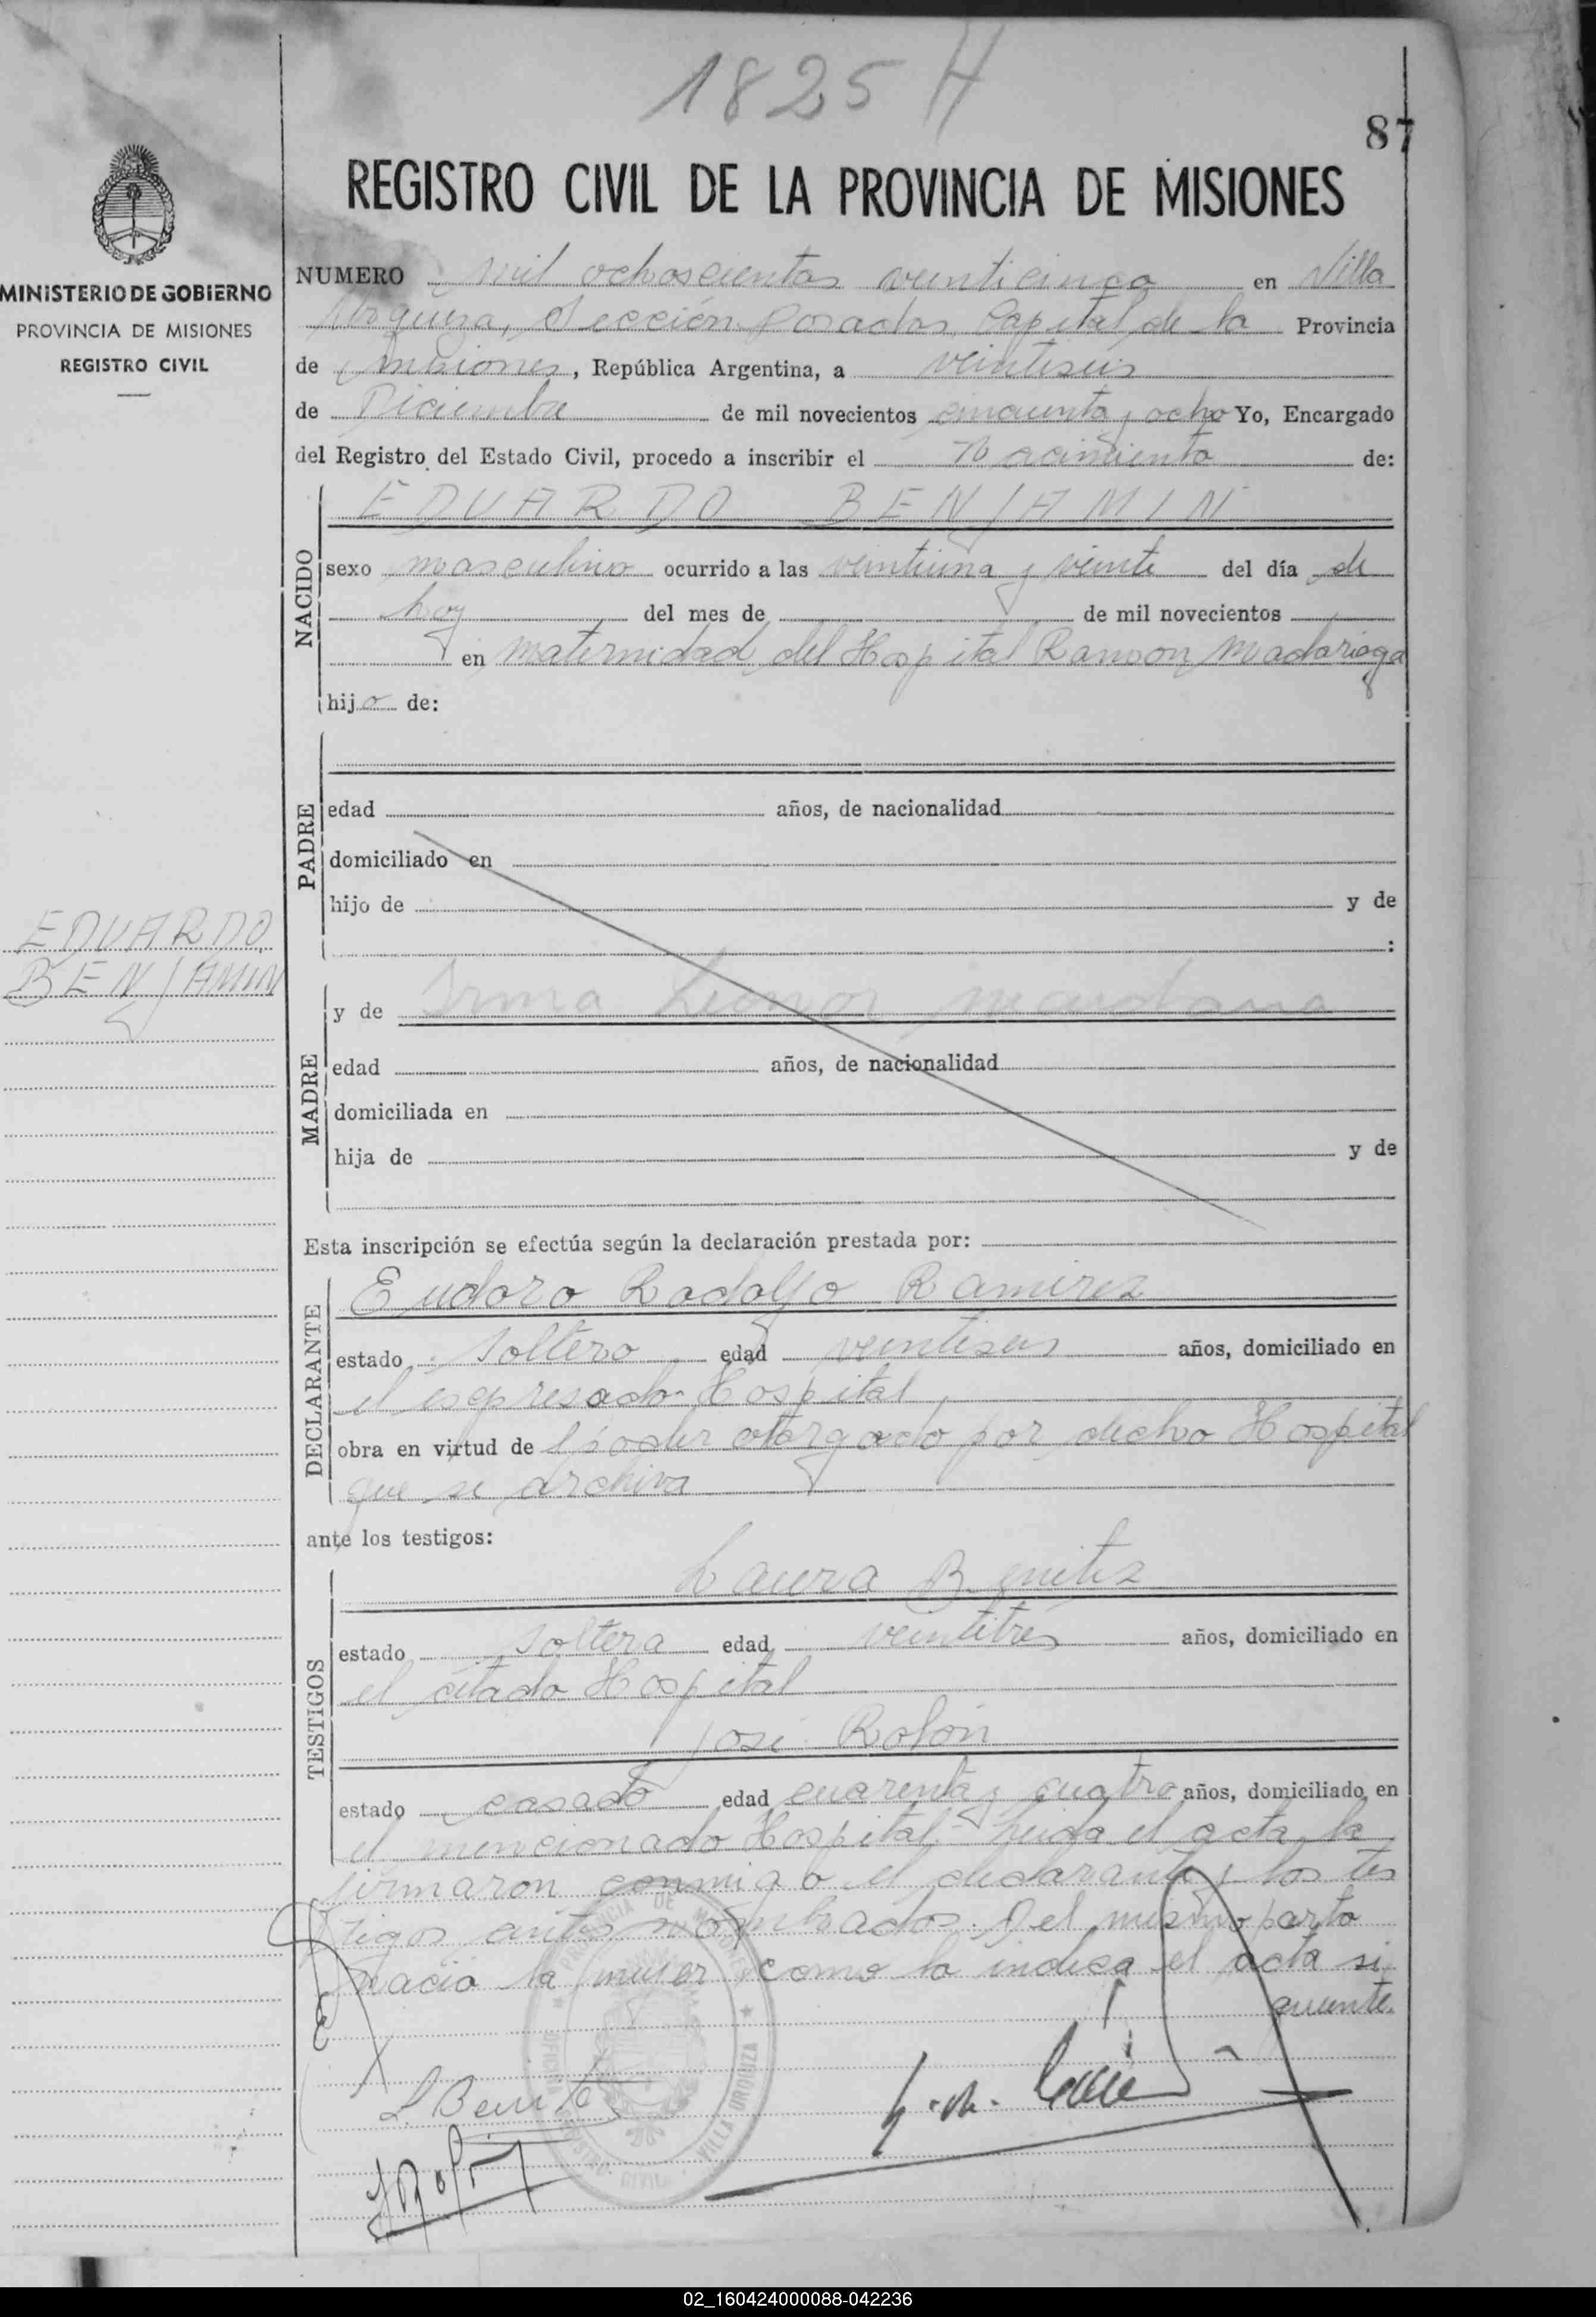 1825 H
87
REGISTRO CIVIL DE LA PROVINCIA DE MISIONES
MINISTERIO DE GOBIERNO
PROVINCIA DE MISIONES
REGISTRO CIVIL
NUMERO mil ochoscientos veinticinco en Villa
Urquiza, Sección Posadas Capital de la Provincia
de Misiones, República Argentina, a veintiseis
de Diciembre de mil novecientos cincuenta y ocho Yo, Encargado
del Registro del Estado Civil, procedo a inscribir el Nacimiento de:
NACIDO
EDUARDO BENJAMIN
sexo masculino ocurrido a las veintiuna y veinte del día de
hoy del mes de de mil novecientos
en maternidad del Hospital Ramon Madariaga
hijo de:
PADRE
edad años, de nacionalidad
domiciliado en
hijo de y de
:
EDUARDO
BENJAMIN
MADRE
y de Irma Leonor
edad años, de nacionalidad
domiciliada en
hija de y de
Esta inscripción se efectúa según la declaración prestada por:
DECLARANTE
Eudoro Rodolfo Ramirez
estado soltero edad veintiseis años, domiciliado en
el espresado Hospital
obra en virtud de l poder otorgado por dicho Hospital
que se archiva
ante los testigos:
TESTIGOS
Laura Benitez
estado soltera edad veintitres años, domiciliado en
el citado Hospital
José Rolón
estado casado edad cuarenta y cuatro años, domiciliado en
el mencionado Hospital. Leida el acta la
firmaron conmigo el declarante y los tes
tigos antes nombrados. Del mismo parto
nacio la mujer como lo indica el acta si
guiente.
PROVINCIA DE MISIONES
OFICINA REGISTRO CIVIL VILLA URQUIZA
L. Benitez
J Rolón
02_160424000088-042236